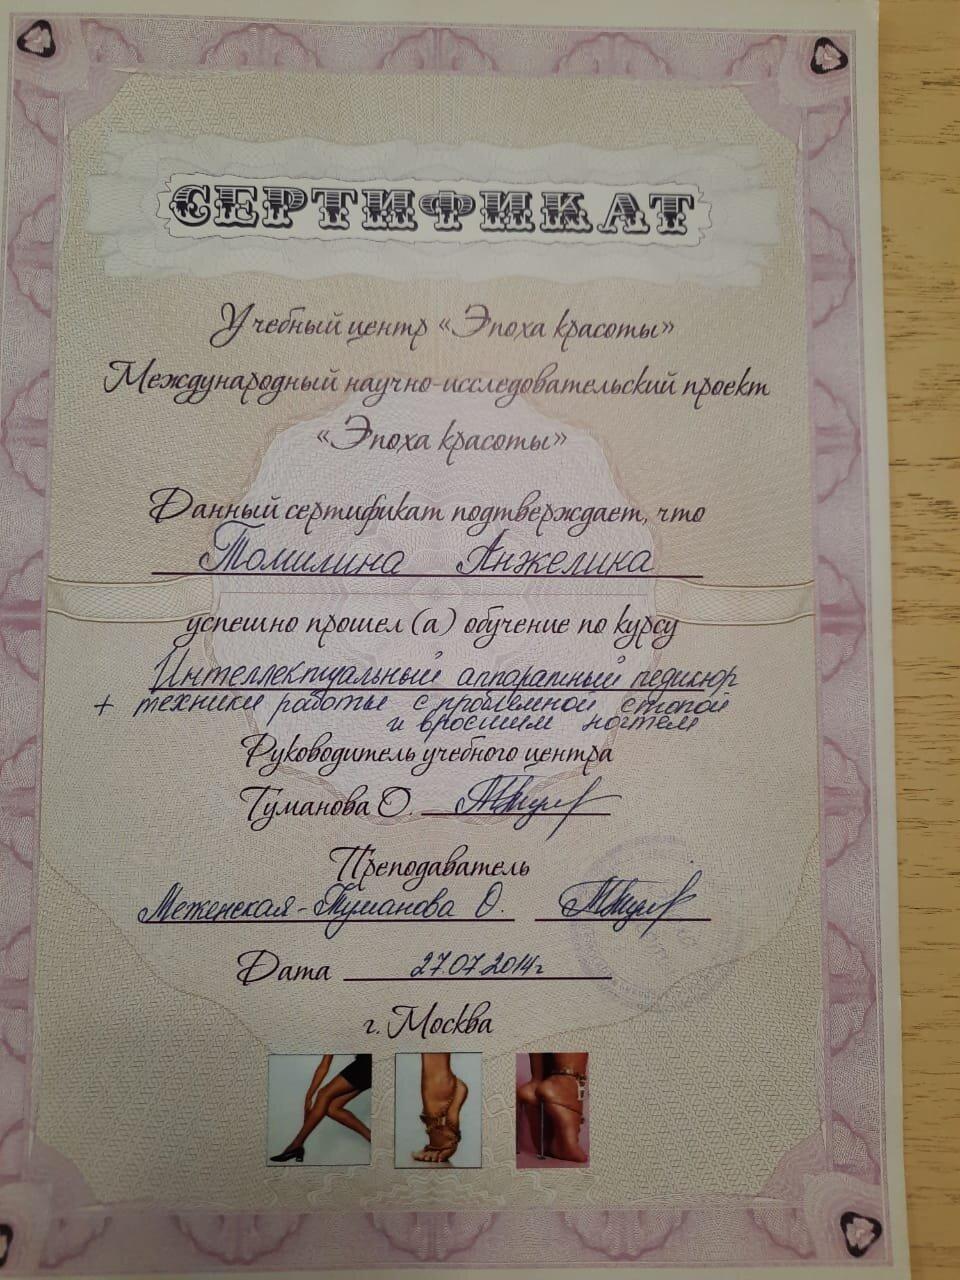 СЕРТИФИКАТ
Учебный центр «Эпоха красоты»
Международный научно-исследовательский проект
«Эпоха красоты»
Данный сертификат подтверждает, что
Томилина Анжелина
успешно прошел (а) обучение по курсу
Интеллектуальный аппаратный педикюр
+ техники работы с проблемной стопой
и вросшим ногтем
Руководитель учебного центра
Туманова О.
Преподаватель
Меженская-Туманова О.
Дата 27.07.2014г
г. Москва